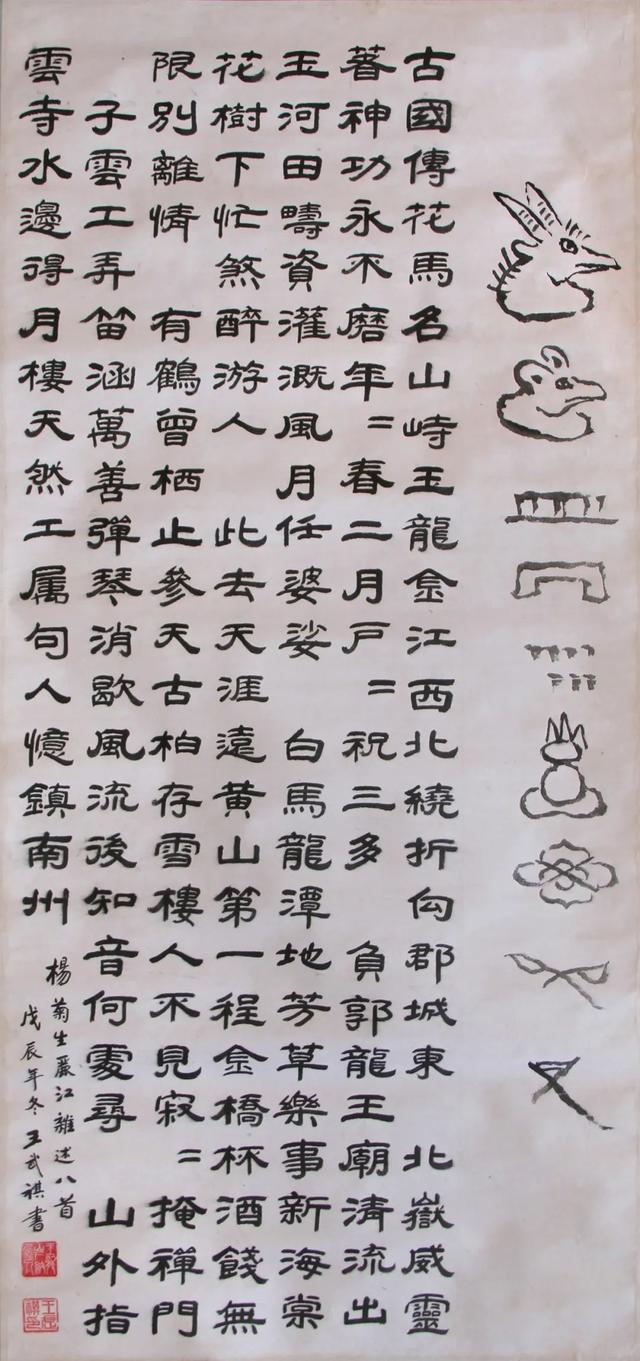 古國傳花馬名山峙玉龍金江西北繞折向郡城東 北嶽威靈
著神功永不磨年〓春二月戶〓祝三多 負郭龍王廟清流出
玉河田疇資灌溉風月任婆娑 白馬龍潭地芳草樂事新海棠
花樹下忙煞醉游人 此去天涯遠黃山第一程金橋杯酒餞無
限別離情 有鶴曾栖止參天古柏存雪樓人不見寂〓掩禪門
子雲工弄笛涵萬善彈琴消歇風流後知音何處尋 山外指
雲寺水邊得月樓天然工属句人憶鎮南州
楊菊生麗江雜述八首
戊辰年冬王武祺書